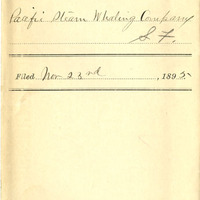 Pacific Steam Whaling Company
S. F.
Filed Nov 23rd, 1895.